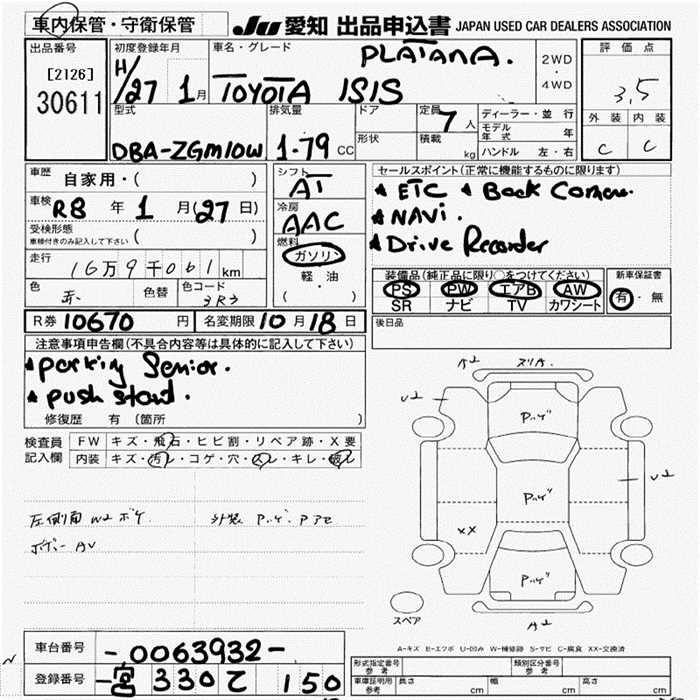 車内保管・守衛保管 JU 愛知 出品申込書 JAPAN USED CAR DEALERS ASSOCIATION
出品番号 初度登録年月 車名・グレード PLATANA. 2WD・4WD 評価点
[2126] H/27 1月 TOYOTA ISIS 3,5
30611
型式 排気量 ドア 定員 7人 ディーラー・並行 外装 内装
DBA-ZGM10W 1.79 CC 形状 積載 kg モデル年式 年 C C
ハンドル 左・右
車歴 自家用・( ) シフト AT セールスポイント(正常に機能するものに限ります)
車検 R8年 1月(27日) 冷房 AAC ★ ETC ★ Back Camera.
受検形態 ( ) ★ NAVi.
車検付きのみ記入して下さい 燃料 ガソリン ★ Drive Recorder
走行 16万9千061km 軽・油
色 赤 色替 色コード 3R3 ( )
装備品(純正品に限り○をつけてください) 新車保証書
PS PW エアB AW 有・無
SR ナビ TV カワシート
R券 10670円 名変期限 10月18日 後日品
注意事項申告欄(不具合内容等は具体的に記入して下さい)
★ parking Senior.
★ push start.
修復歴 有 (箇所 )
検査員記入欄 FW キズ・飛石・ヒビ割・リペア跡・X要
内装 キズ・汚れ・コゲ・穴・スレ・キレ・破れ
左側面 W2 ボケ. 外装 P.ハゲ. P.アセ
ボデー AV
A2
U2
P.ハゲ
U2
P.ハゲ
XX
P.ハゲ
スペア A2
A-キズ E-エクボ U-凹み W-補修跡 S-サビ C-腐食 XX-交換済
車台番号 -0063932-
登録番号 -宮 330 て 150
形式指定番号 参考 類別区分番号 参考
車庫証明用 参考 長さ cm 幅 cm 高さ cm